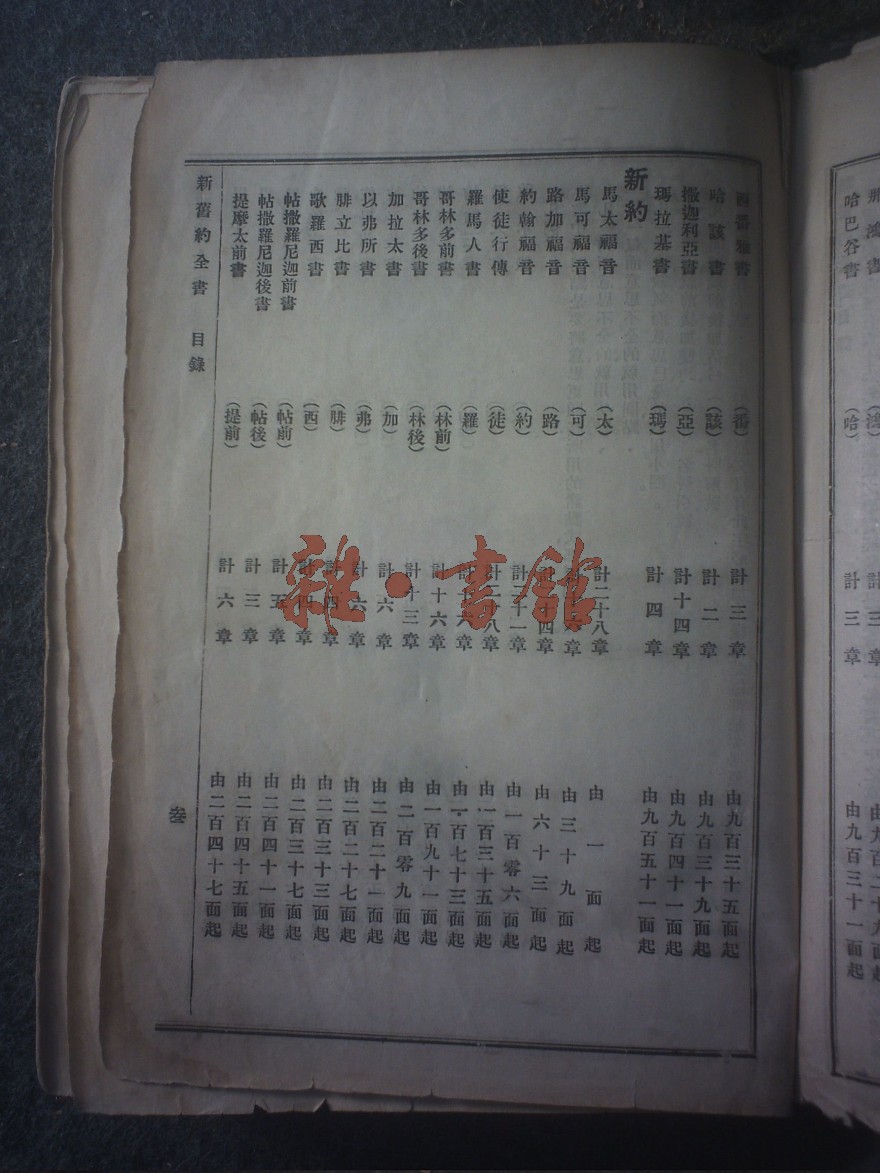 哈巴谷書 (哈) 計三章 由九百三十一面起
西番雅書 (番) 計三章 由九百三十五面起
哈該書 (該) 計二章 由九百三十九面起
撒迦利亞書 (亞) 計十四章 由九百四十一面起
瑪拉基書 (瑪) 計四章 由九百五十一面起
新約
馬太福音 (太) 計二十八章 由一面起
馬可福音 (可) 章 由三十九面起
路加福音 (路) 十四章 由六十三面起
約翰福音 (約) 計二十一章 由一百零六面起
使徒行傳 (徒) 計二十八章 由一百三十五面起
羅馬人書 (羅) 計十六章 由一百七十三面起
哥林多前書 (林前) 計十六章 由一百九十一面起
哥林多後書 (林後) 計十三章 由二百零九面起
加拉太書 (加) 計六章 由二百二十一面起
以弗所書 (弗) 計六章 由二百二十七面起
腓立比書 (腓) 計四章 由二百三十三面起
歌羅西書 (西) 計四章 由二百三十七面起
帖撒羅尼迦前書 (帖前) 計五章 由二百四十一面起
帖撒羅尼迦後書 (帖後) 計三章 由二百四十五面起
提摩太前書 (提前) 計六章 由二百四十七面起
新舊約全書 目錄 叁
雜·書館